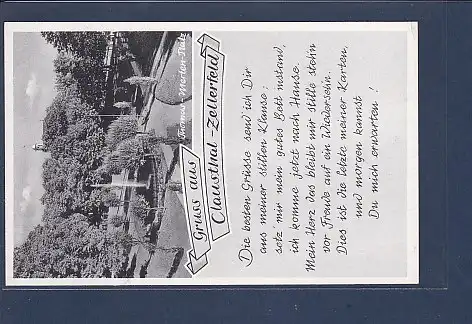 Thermen-Worten-Platz
Gruss aus
Clausthal-Zellerfeld
Die besten Grüsse send ich Dir
aus meiner stillen Klause:
setz' mir mein gutes Bett instand,
ich komme jetzt nach Hause.
Mein Herz das bleibt mir stille stehn
vor Freude auf ein Wiedersehn.
Dies ist die letzte meiner Karten,
und morgen kannst
Du mich erwarten!